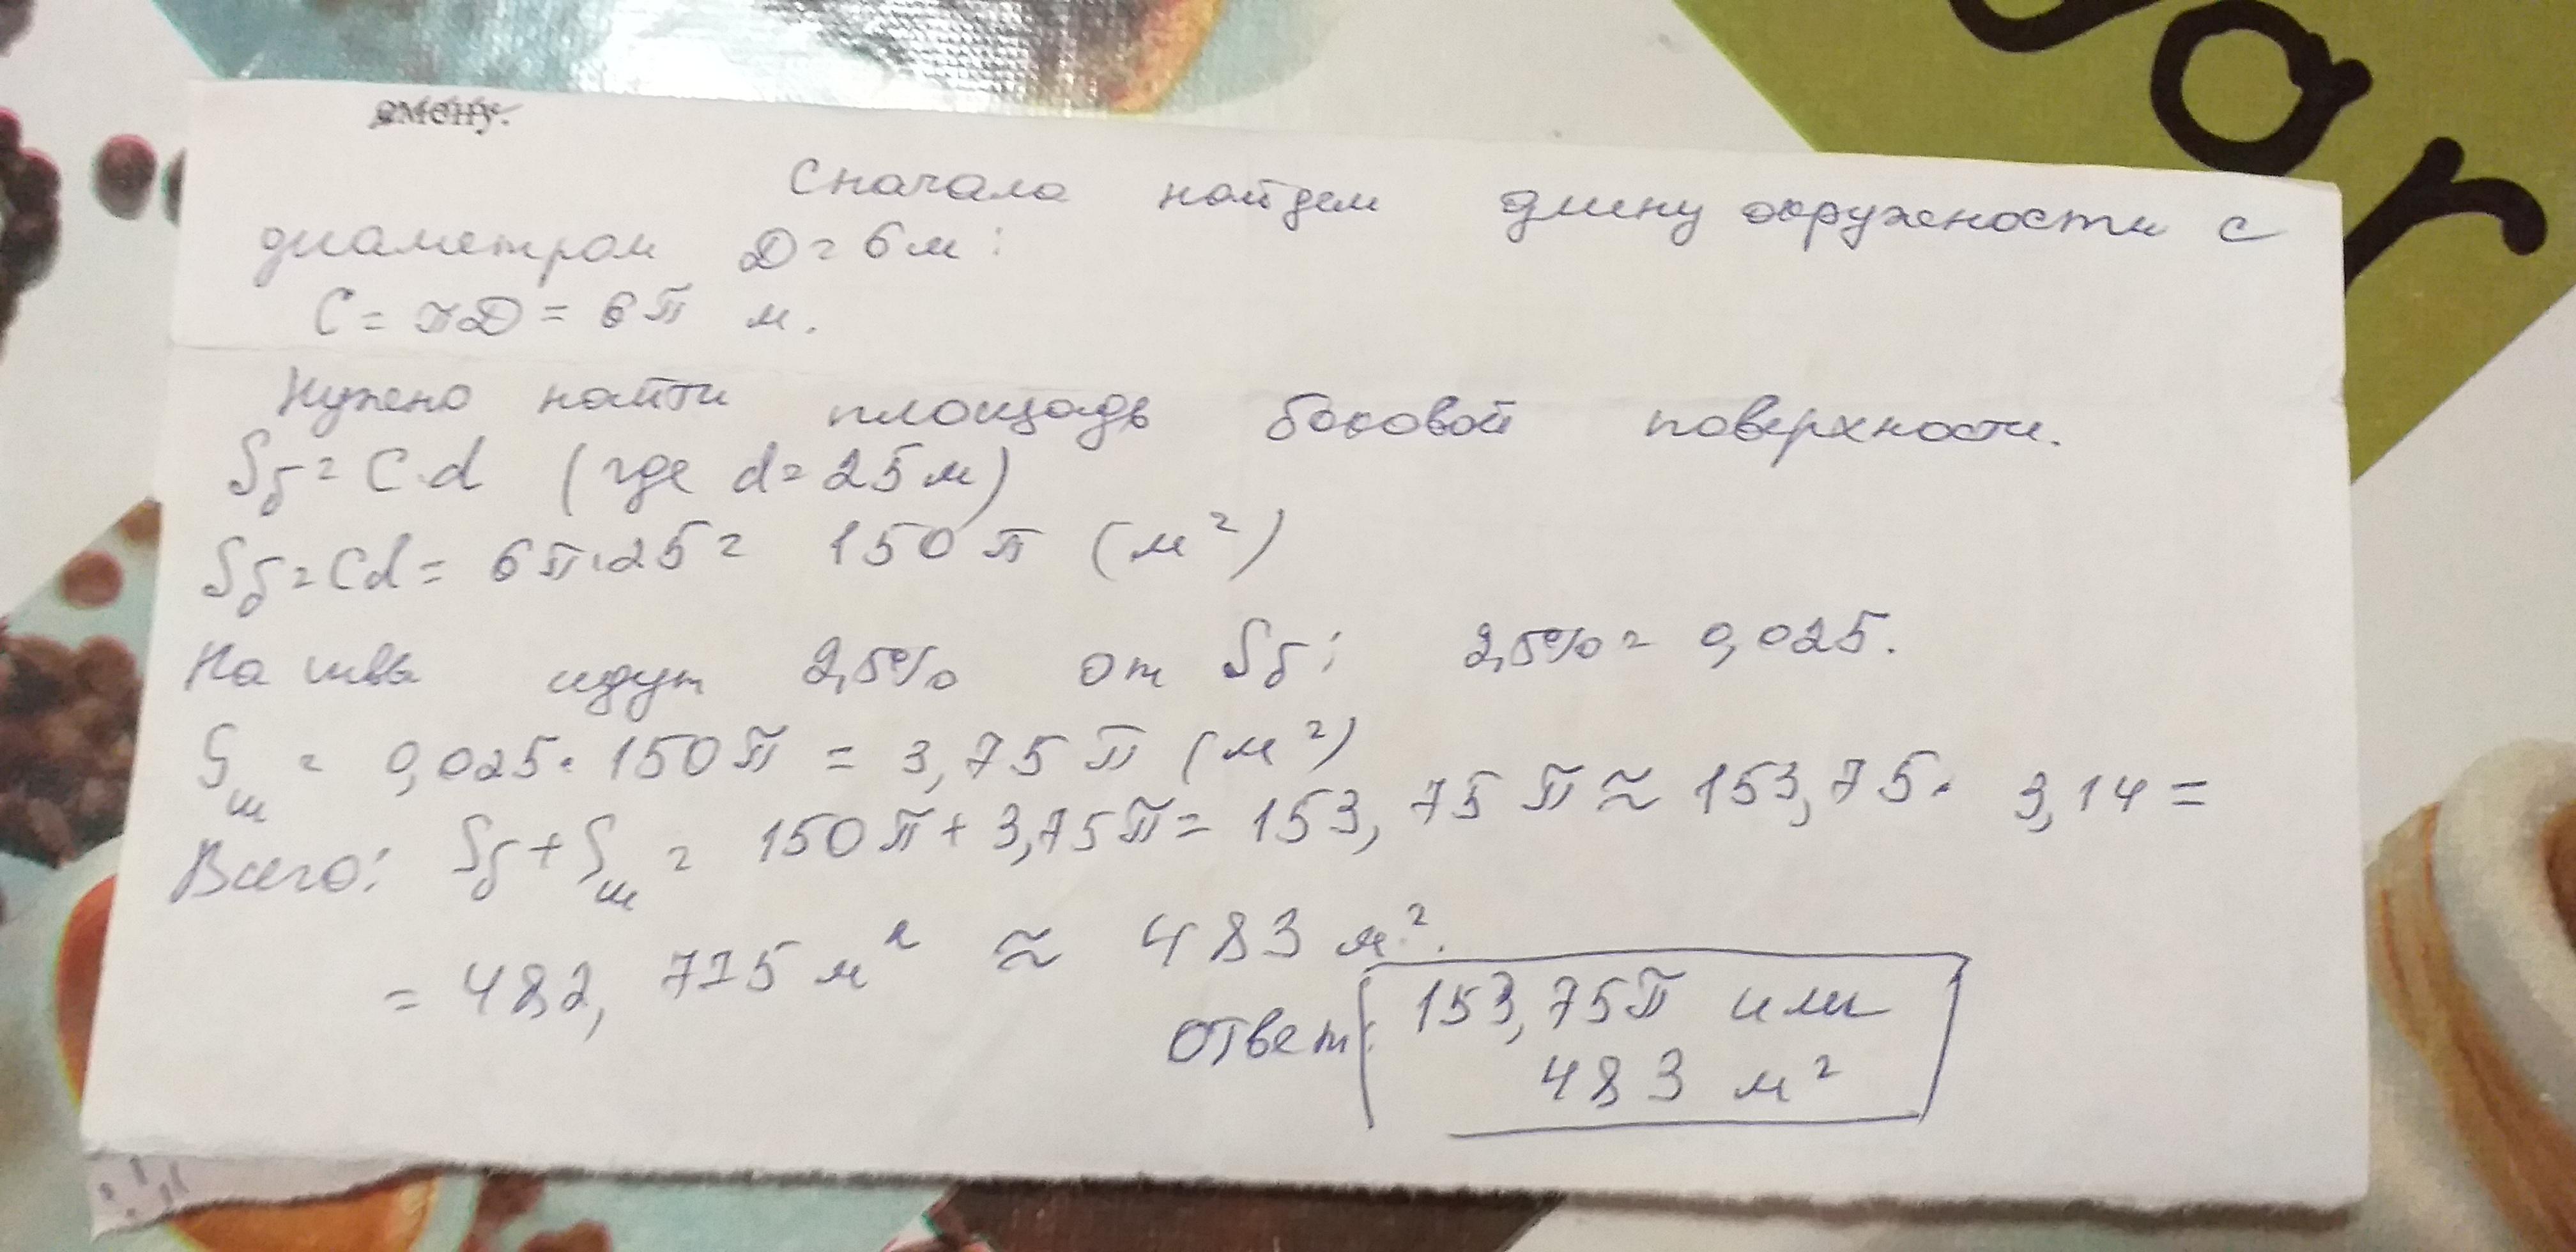 ar
Сначала найдем длину окружности с
диаметром D = 6 м:
C = πD = 6π м.
Нужно найти площадь боковой поверхности.
Sб = C·d (где d = 25 м)
Sб = Cd = 6π·25 = 150π (м²)
На швы идут 2,5% от Sб: 2,5% = 0,025.
Sш = 0,025·150π = 3,75π (м²)
Всего: Sб + Sш = 150π + 3,75π = 153,75π ≈ 153,75·3,14 =
= 482,775 м² ≈ 483 м².
Ответ: 153,75π или
483 м²